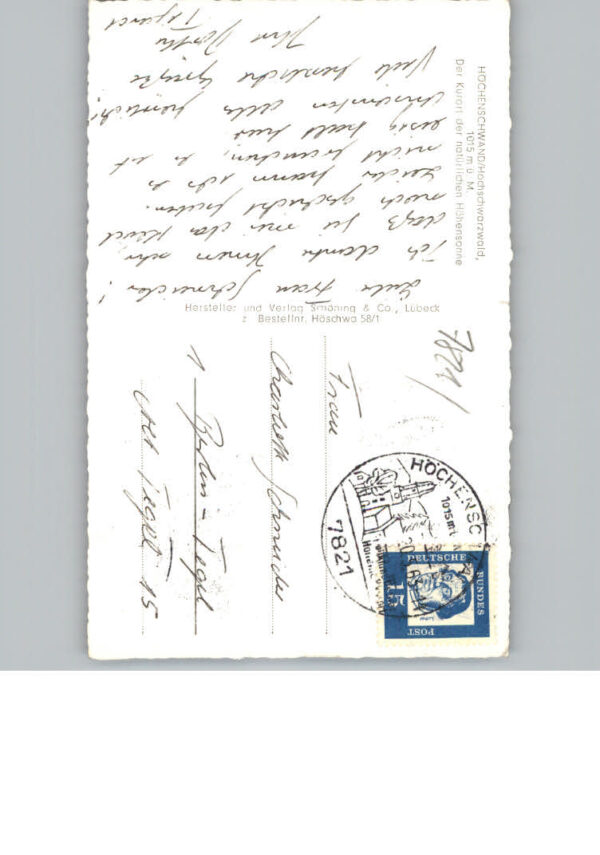 HÖCHENSCHWAND/Hochschwarzwald,
1015 m ü. M.
Der Kurort der natürlichen Höhensonne
Liebe Frau Schneider!
Ich danke Ihnen sehr
daß Sie mir das Kleid
noch geschickt haben.
Leider kann ich es
nicht brauchen, es ist
eisig kalt hier
ansonsten alles herrlich!
Viele herzliche Grüße
Ihre Dorthe
Hersteller und Verlag Schöning & Co., Lübeck
z Bestellnr. Höschwa 58/1
7821/
Frau
Charlotte Schneider
1 Berlin-Tegel
Alt Tegel 15
HÖCHENSCHWAND
1015 m
7821
DEUTSCHE
BUNDES
POST
15